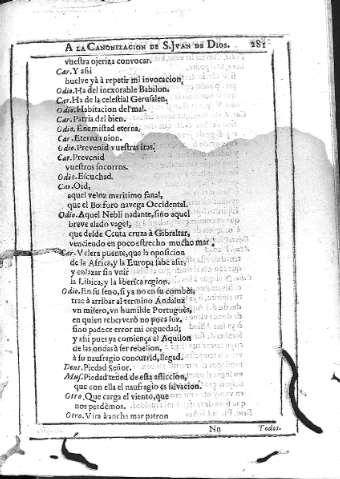 A LA CANONIZACION DE S. JVAN DE DIOS. 281
vuestra ojeriza convocar.
Car. Y aſsi
buelve yà à repetir mi invocacion,
Odio. Ha del inexorable Babilon.
Car. Ha de la celeſtial Geruſalen,
Odio. Habitacion del mal.
Car. Patria del bien.
Odio. Enemiſtad eterna.
Car. Eterna vnion.
Odio. Prevenid vueſtras iras.
Car. Prevenid
vueſtros ſocorros.
Odio. Eſcuchad.
Car. Oid,
aquel veloz maritimo fanal,
que el Bosforo navega Occidental.
Odio. Aquel Nebli nadante, ſino aquel
breve alado vagel,
que deſde Ceuta cruza à Gibraltar,
venciendo en poco eſtrecho mucho mar.
Car. Velera puente, que la opoſicion
de la Africa, y la Europa ſabe aſir,
y enlazar ſin vnir
la Libica, y la Iberica region.
Odio. En ſu ſeno, ſi ya no en ſu combès,
trae à arribar al termino Andaluz
vn miſero, vn humilde Portuguès,
en quien reberverò no poca luz,
ſino padece error mi ceguedad;
y aſsi pues ya comiença el Aquilon
de las ondas à ſer rebelion,
à ſu naufragio concurrid, llegad.
Dent. Piedad Señor.
Muſ. Piedad tened de eſta afliccion,
que con ella el naufragio es ſalvacion.
Otro. Que carga el viento, que
nos perdèmos.
Otro. Vira à mar patron
Nn Todos.